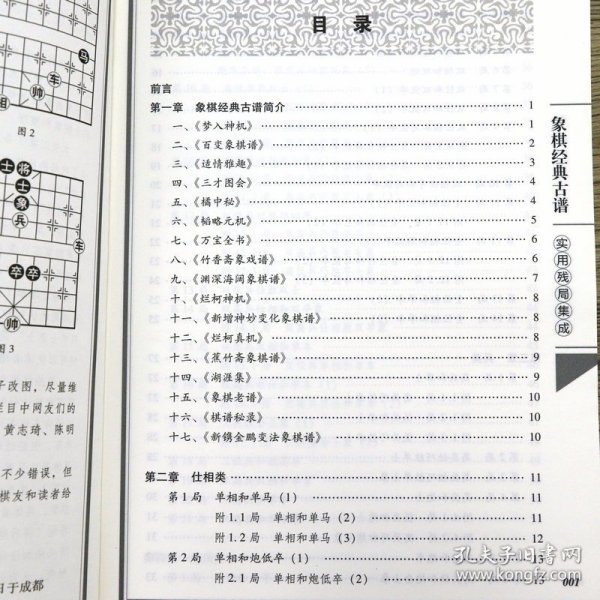 马
车
相
帅
图2
士
将
士
象
兵
车
卒
卒
帅
图3
子改图，尽量维
栏目中网友们的
黄志琦、陈明
不少错误，但
棋友和读者给
日于成都
目 录
前言
第一章 象棋经典古谱简介 1
一、《梦入神机》 1
二、《百变象棋谱》 2
三、《适情雅趣》 3
四、《三才图会》 4
五、《橘中秘》 4
六、《韬略元机》 5
七、《万宝全书》 6
八、《竹香斋象戏谱》 6
九、《渊深海阔象棋谱》 7
十、《烂柯神机》 8
十一、《新增神妙变化象棋谱》 8
十二、《烂柯真机》 8
十三、《蕉竹斋象棋谱》 9
十四、《湖涯集》 9
十五、《象棋老谱》 10
十六、《棋谱秘录》 10
十七、《新镌金鹏变法象棋谱》 10
第二章 仕相类 11
第1局 单相和单马（1） 11
附1.1局 单相和单马（2） 11
附1.2局 单相和单马（3） 12
第2局 单相和炮低卒（1） 13
附2.1局 单相和炮低卒（2） 13
象棋经典古谱
实用残局集成
001
孔夫子旧书网
www.kongfz.com